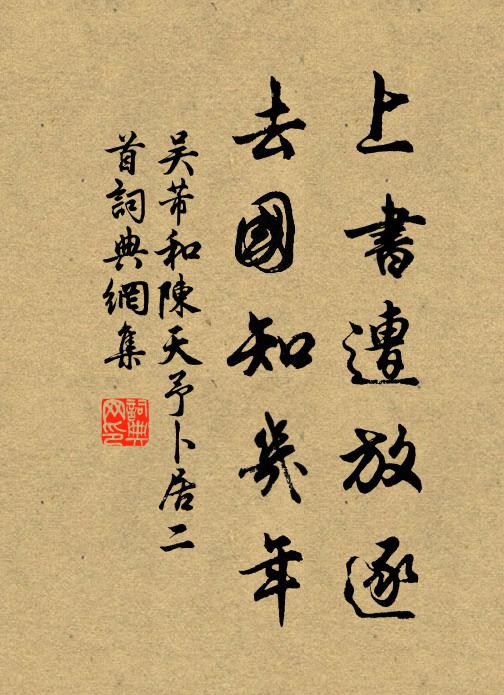 上書遭放逐
去國知幾年
吴芾和陳天予卜居二
首詞典網集
詞典
网印